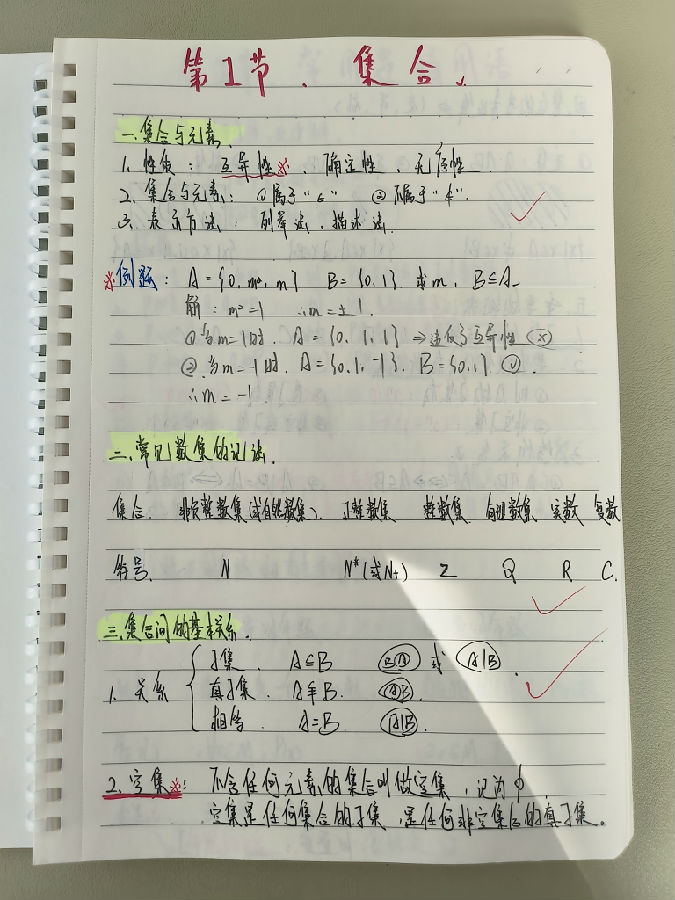 第1节、集合.
一、集合与元素.
1. 性质: 互异性※、确定性、无序性
2. 集合与元素: ①属于"∈" ②不属于"∉".
3. 表示方法: 列举法、描述法.
※例题: A={0, m², m} B={0,1} 求m, B⊆A
解: m²=1 ∴m=±1
①当m=1时, A={0,1,1} ⇒违反了互异性 (×)
②当m=-1时, A={0,1,-1}, B={0,1} (√).
∴m=-1.
二、常见数集的记法.
集合. 非负整数集(或自然数集) 正整数集 整数集 有理数集 实数 复数
符号. N N*(或N+) Z Q R C.
三、集合间的基本关系.
子集. A⊆B BA 或 A|B.
1. 关系 真子集. A⫋B. AB.
相等. A=B A|B
2. 空集※: 不含任何元素的集合叫做空集,记为∅.
空集是任何集合的子集,是任何非空集合的真子集。